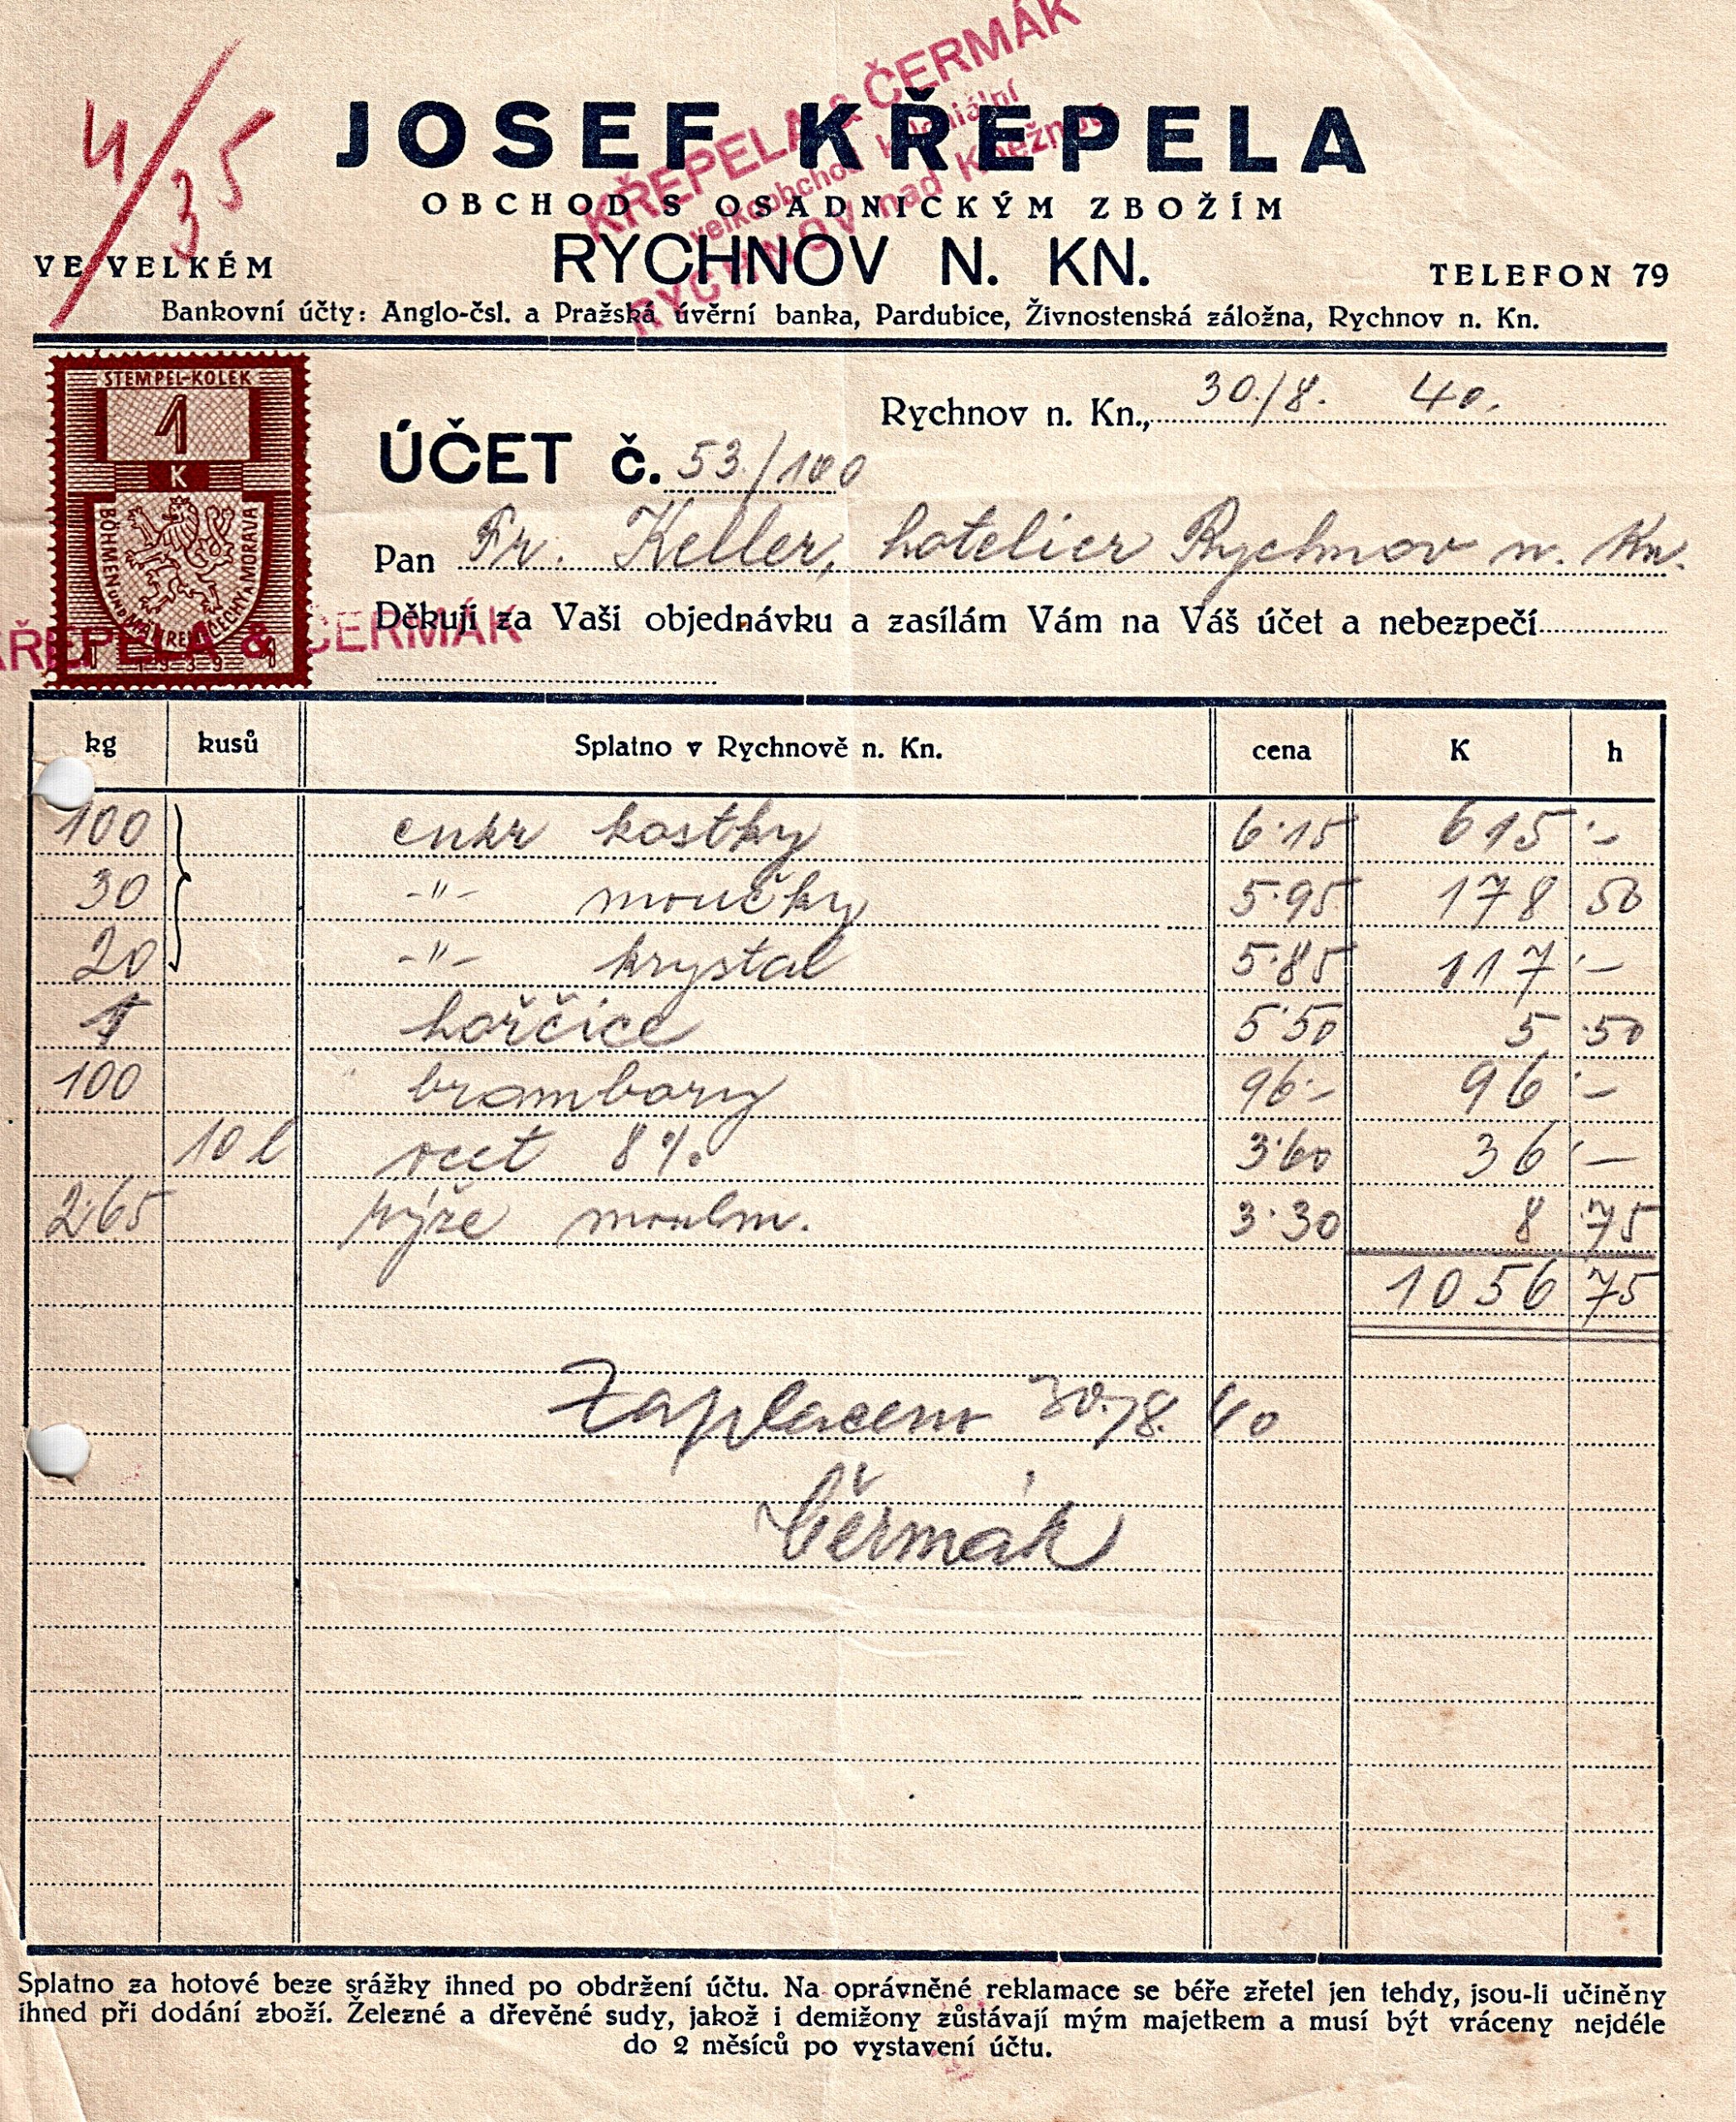 4/35
KŘEPELA & ČERMÁK
velkoobchod koloniální
RYCHNOV nad Kněžnou
JOSEF KŘEPELA
OBCHOD S OSADNICKÝM ZBOŽÍM
VE VELKÉM RYCHNOV N. KN. TELEFON 79
Bankovní účty: Anglo-čsl. a Pražská úvěrní banka, Pardubice, Živnostenská záložna, Rychnov n. Kn.
STEMPEL-KOLEK
1
K
BÖHMEN UND MÄHREN ČECHY A MORAVA
1 1939 1
Rychnov n. Kn., 30./8. 40.
ÚČET č. 53./100
Pan Fr. Keller, hotelier Rychnov n. Kn.
Děkuji za Vaši objednávku a zasílám Vám na Váš účet a nebezpečí
KŘEPELA & ČERMÁK
kg kusů Splatno v Rychnově n. Kn. cena K h
100 cukr kostky 6·15 615 ·–
30 -"- moučky 5·95 178 50
20 -"- krystal 5·85 117 ·–
1 hořčice 5·50 5 ·50
100 brambory 96·– 96 ·–
10 l ocet 8% 3·60 36 ·–
2·65 rýže moulm. 3·30 8 ·75
1056 75
Zaplaceno 30./8. 40
Čermák
Splatno za hotové beze srážky ihned po obdržení účtu. Na oprávněné reklamace se béře zřetel jen tehdy, jsou-li učiněny
ihned při dodání zboží. Železné a dřevěné sudy, jakož i demižony zůstávají mým majetkem a musí být vráceny nejdéle
do 2 měsíců po vystavení účtu.